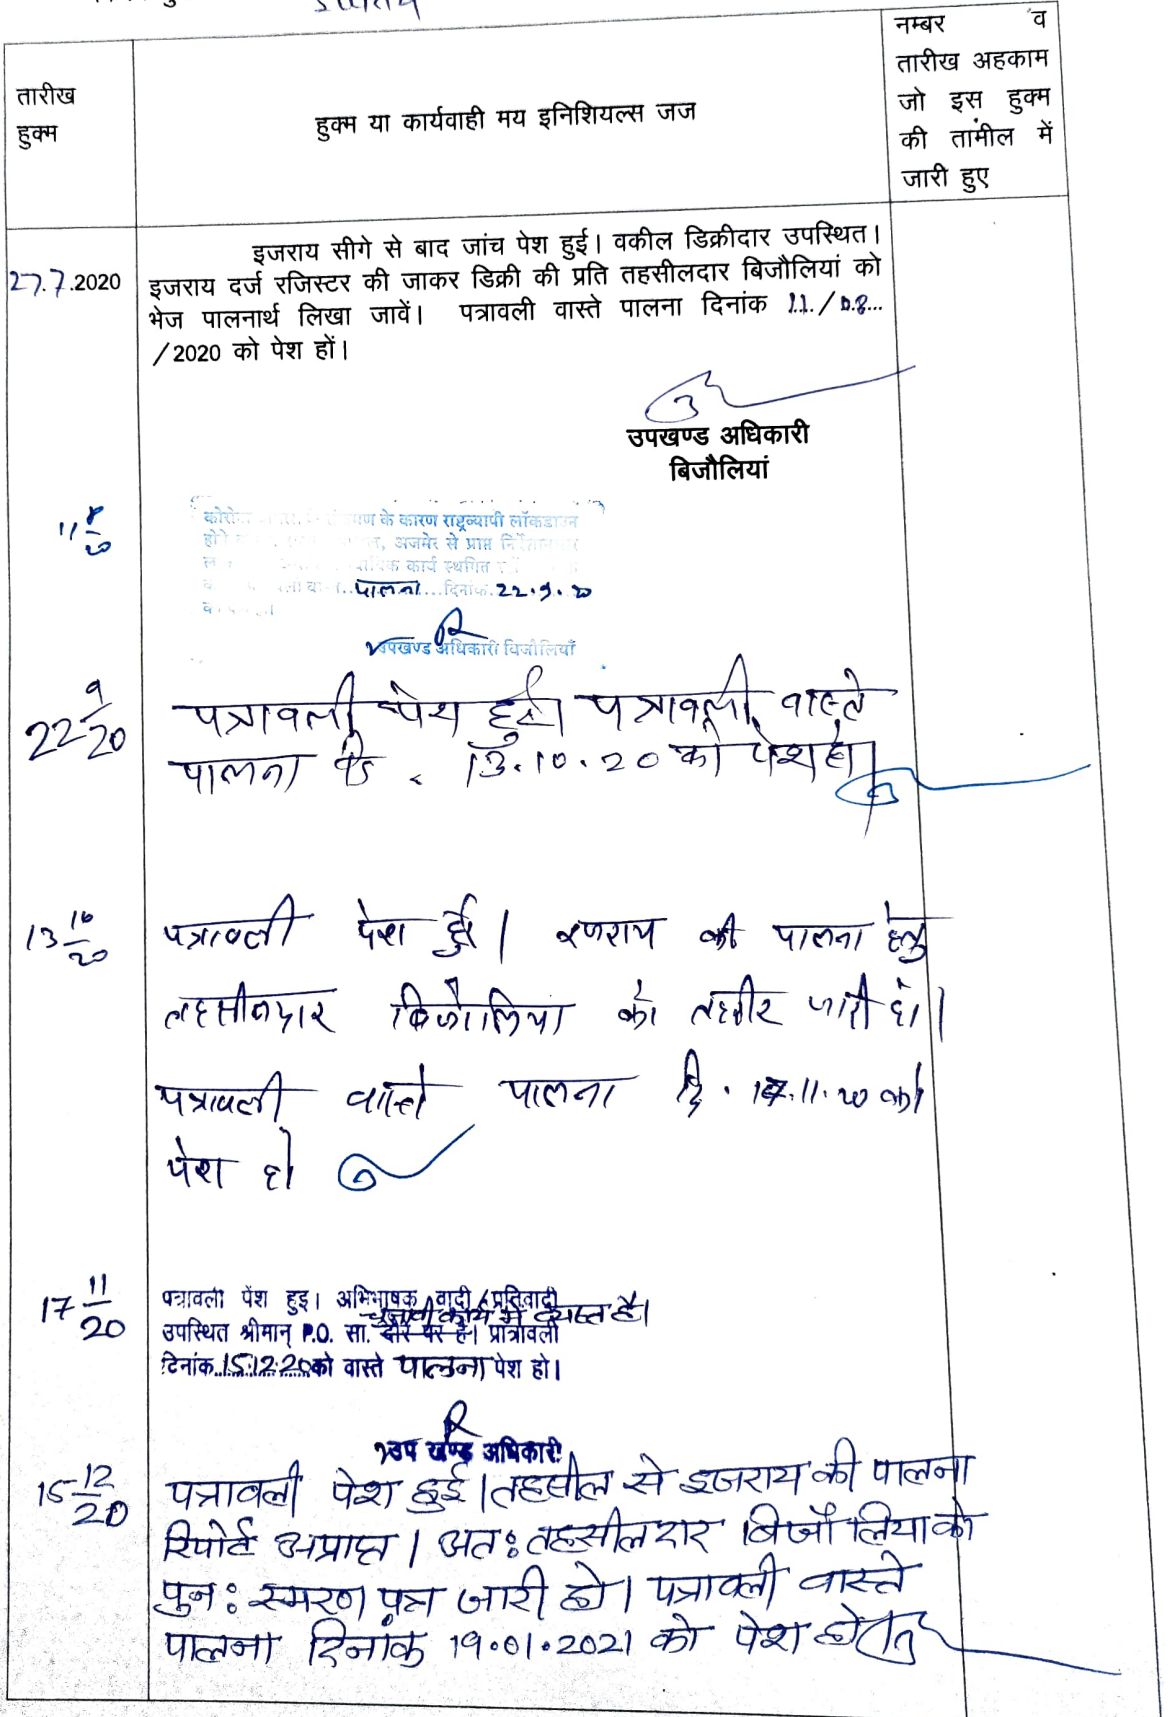 तारीख
हुक्म
हुक्म या कार्यवाही मय इनिशियल्स जज
नम्बर व
तारीख अहकाम
जो इस हुक्म
की तामील में
जारी हुए
27.7.2020
इजराय सीगे से बाद जांच पेश हुई। वकील डिक्रीदार उपस्थित।
इजराय दर्ज रजिस्टर की जाकर डिक्री की प्रति तहसीलदार बिजौलियां को
भेज पालनार्थ लिखा जावें। पत्रावली वास्ते पालना दिनांक 11./08...
/2020 को पेश हों।
उपखण्ड अधिकारी
बिजौलियां
11 8/20
के कारण राष्ट्रव्यापी लॉकडाउन
अजमेर से प्राप्त
कार्य स्थगित
पालना...दिनांक.22.9.20
उपखण्ड अधिकारी बिजौलियाँ
22 9/20
पत्रावली पेश हुई। पत्रावली वास्ते
पालना दि. 13.10.20 को पेश हो।
13 10/20
पत्रावली पेश हुई। इजराय की पालना हेतु
तहसीलदार बिजोलियां को तहरीर जारी हो।
पत्रावली वास्ते पालना दि. 17.11.20 को
पेश हो
17 11/20
पत्रावली पेंश हुइ। अभिभाषक वादी/प्रतिवादी
चुनावी कार्य में व्यस्त है।
उपस्थित श्रीमान् P.O. सा. दौरे पर है। प्रात्रावली
दिनांक..15.12.20को वास्ते पालना पेश हो।
उप खण्ड अधिकारी
15 12/20
पत्रावली पेश हुई। तहसील से इजराय की पालना
रिपोर्ट अप्राप्त। अतः तहसीलदार बिजौलिया को
पुनः स्मरण पत्र जारी हो। पत्रावली वास्ते
पालना दिनांक 19.01.2021 को पेश हो।